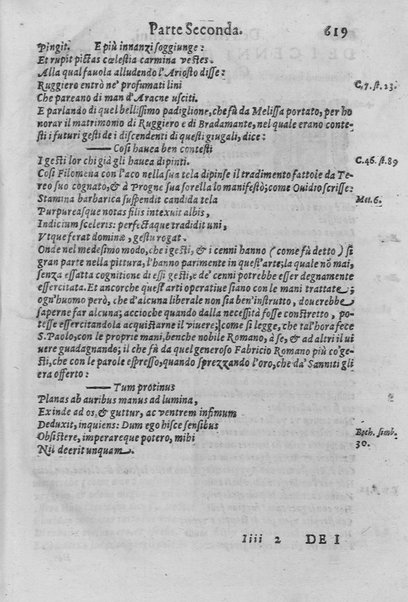 Parte Seconda. 619
Pingit. E più innanzi soggiunge:
Et rupit pictas cœlestia carmina vestes.
Alla qual fauola alludendo l'Ariosto disse:
Ruggiero entrò ne' profumati lini C.7. st.23.
Che pareano di man d'Aracne usciti.
E parlando di quel bellissimo padiglione, che fù da Melissa portato, per ho
norar il matrimonio di Ruggiero e di Bradamante, nel quale erano conte
sti i futuri gesti de i discendenti di questi giugali, dice:
—— Così hauea ben contesti
I gesti lor chi già gli hauea dipinti. C.46. st.89
Così Filomena con l'aco nella sua tela dipinse il tradimento fattole da Te
reo suo cognato, & à Progne sua sorella lo manifestò; come Ouidio scrisse:
Stamina barbarica suspendit candida tela Met.6.
Purpureasque notas filis intexuit albis,
Indicium sceleris: perfectaque tradidit uni,
Vtque ferat dominæ, gestu rogat.
Onde nel medesimo modo, che i gesti, & i cenni hanno (come fù detto) sì
gran parte nella pittura, l'hanno parimente in quest'arte; la quale nō mai,
senza essatta cognitione di essi gesti, e de' cenni potrebbe esser degnamente
essercitata. Et ancorche quest'arti operatiue siano con le mani trattate;
ogn'huomo però, che d'alcuna liberale non sia ben'instrutto, douerebbe
saperne far alcuna; accioche quando dalla necessità fosse constretto, po-
tesse essercitandola acquistarne il viuere; come si legge, che tal'hora fece
S. Paolo, con le proprie mani, benche nobile Romano, à se, & ad altri il ui
uere guadagnando; il che fù da quel generoso Fabricio Romano più co' ge-
sti, che con le parole espresso, quando sprezzando l'oro, che da' Sanniti gli
era offerto:
—— Tum protinus
Planas ab auribus manus ad lumina,
Exinde ad os, & guttur, ac ventrem infimum
Deduxit, inquiens: Dum ego hisce sensibus
Obsistere, imperareque potero, mihi Boch. simb.
Nil deerit unquam. 30.
Iiii 2 DE I